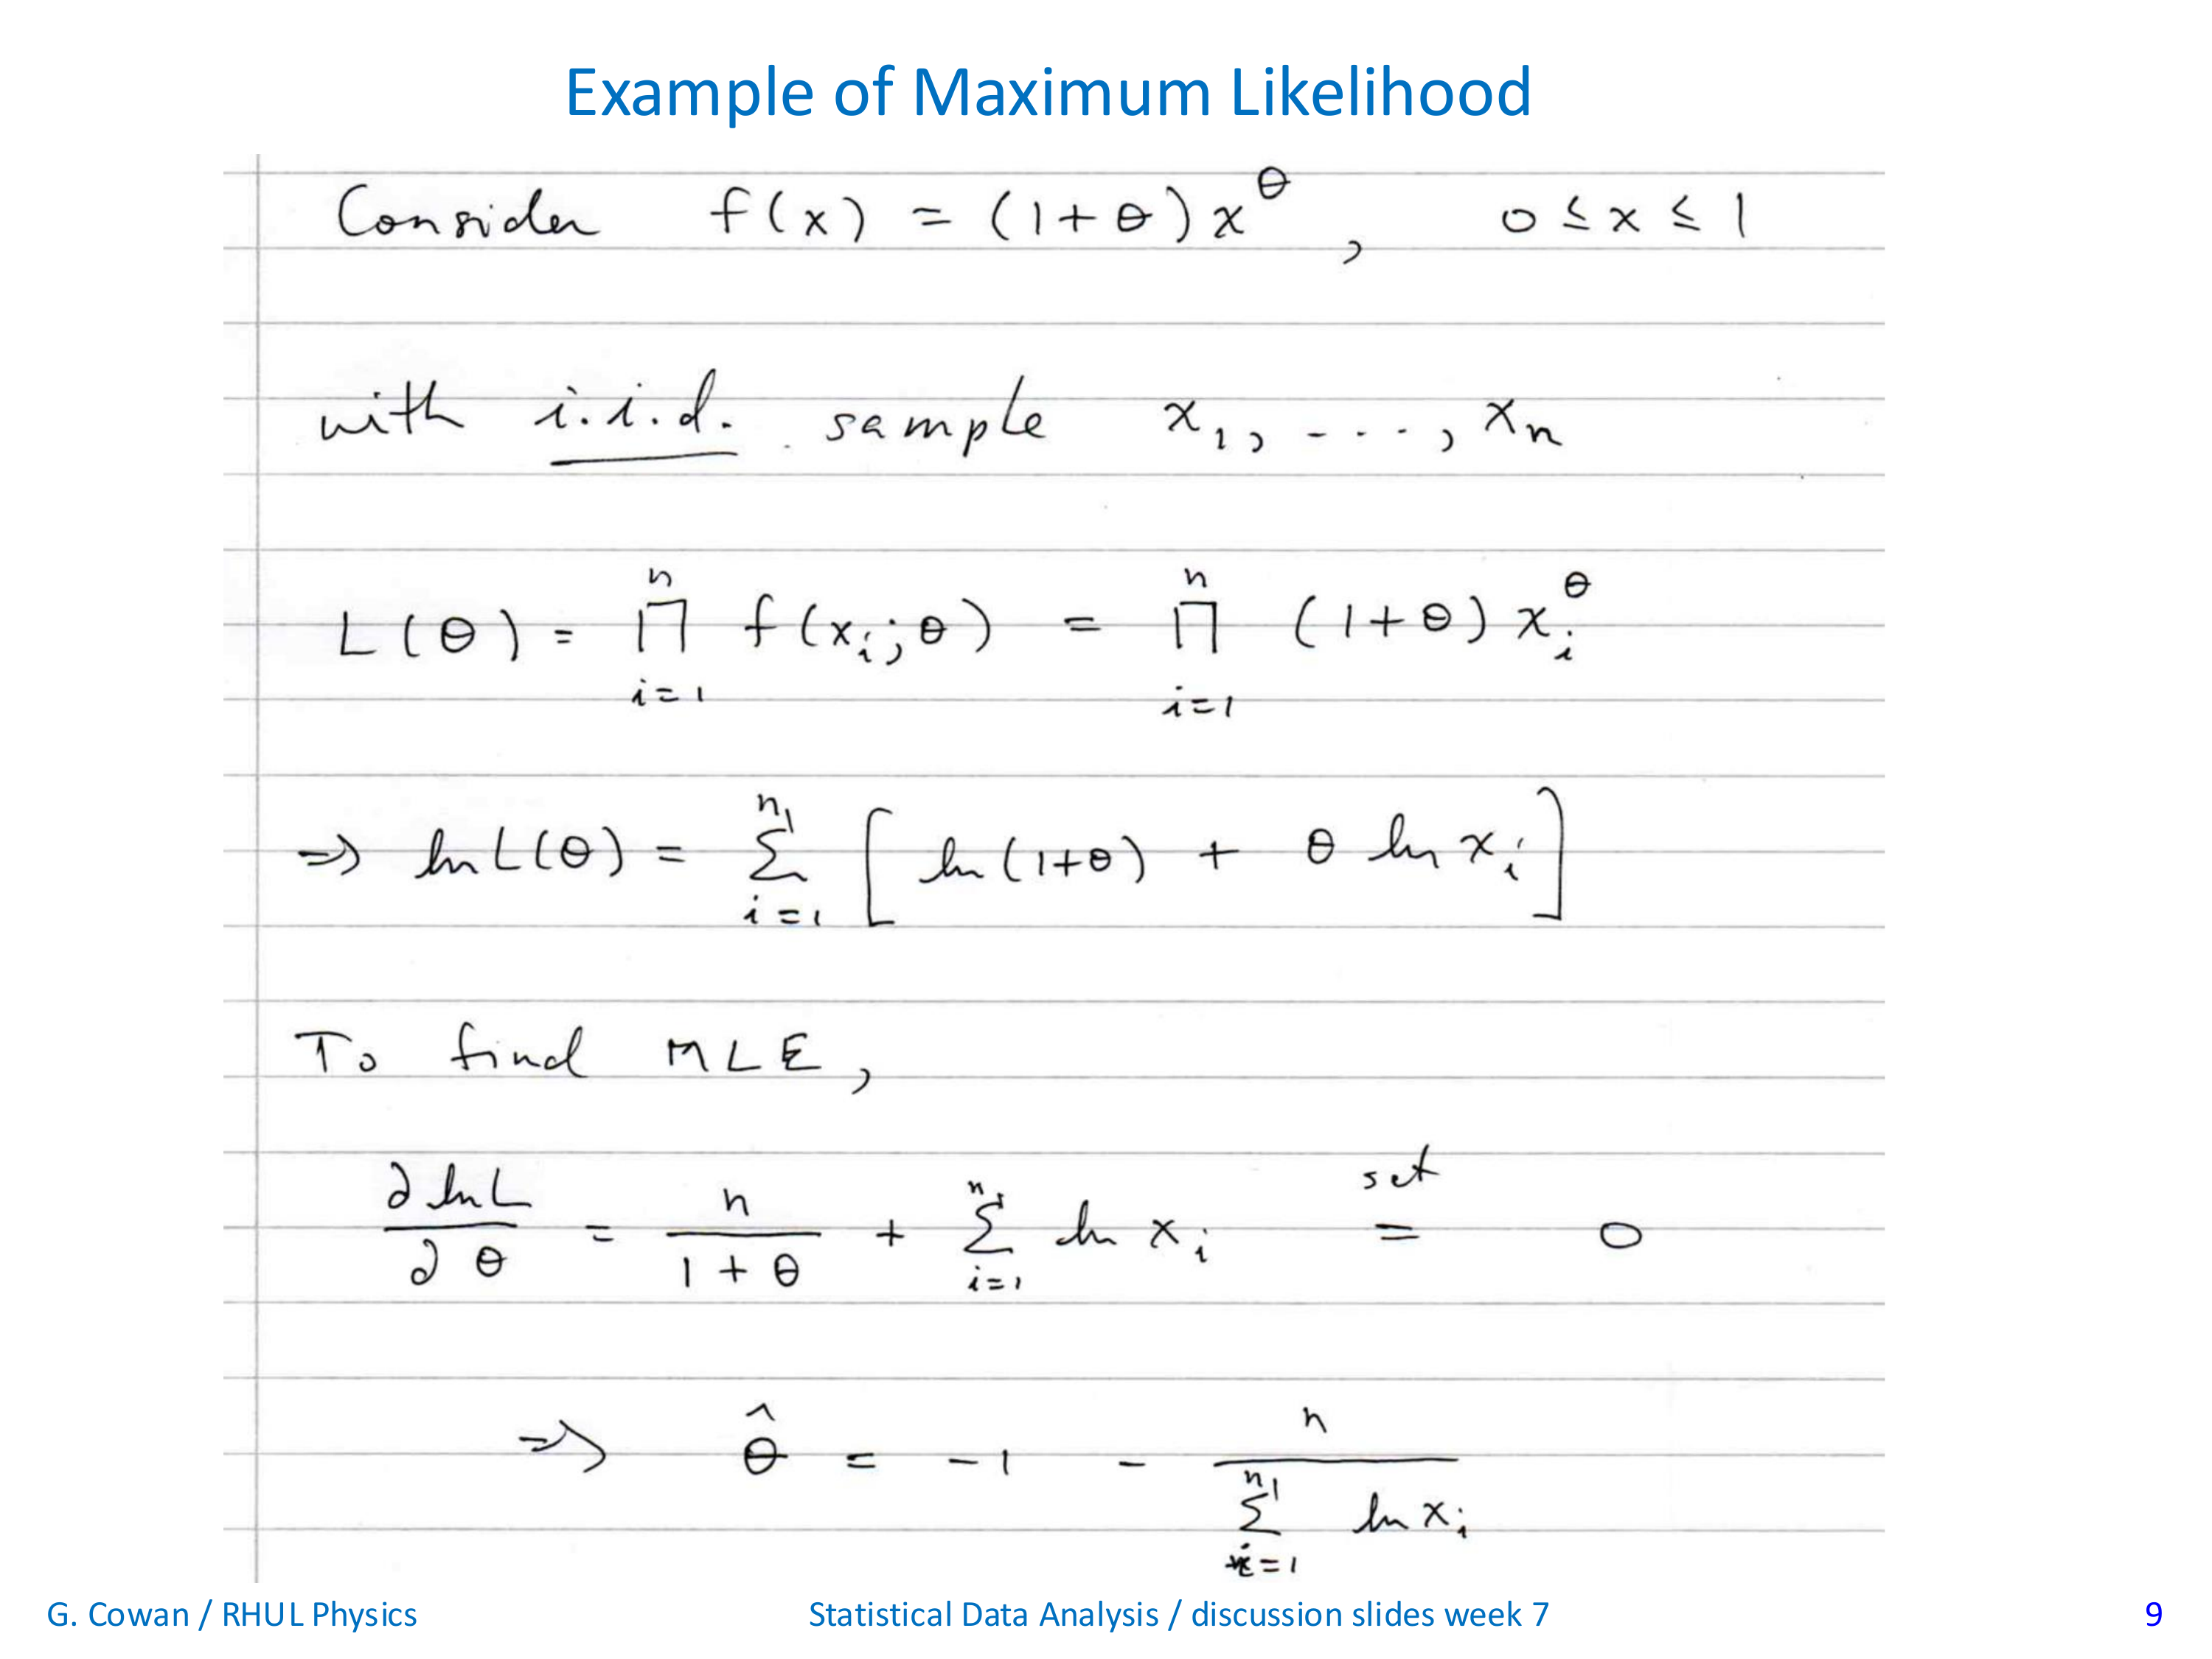 Example of Maximum Likelihood
Consider f(x) = (1+θ)x^θ, 0 ≤ x ≤ 1
with i.i.d. sample x₁, ...., xₙ
L(θ) = ∏_{i=1}^{n} f(xᵢ;θ) = ∏_{i=1}^{n} (1+θ) xᵢ^θ
⇒ ln L(θ) = ∑_{i=1}^{n} [ ln(1+θ) + θ ln xᵢ ]
To find MLE,
∂ ln L / ∂ θ = n / (1 + θ) + ∑_{i=1}^{n} ln xᵢ set = 0
⇒ θ̂ = -1 - n / ∑_{i=1}^{n} ln xᵢ
G. Cowan / RHUL Physics Statistical Data Analysis / discussion slides week 7 9